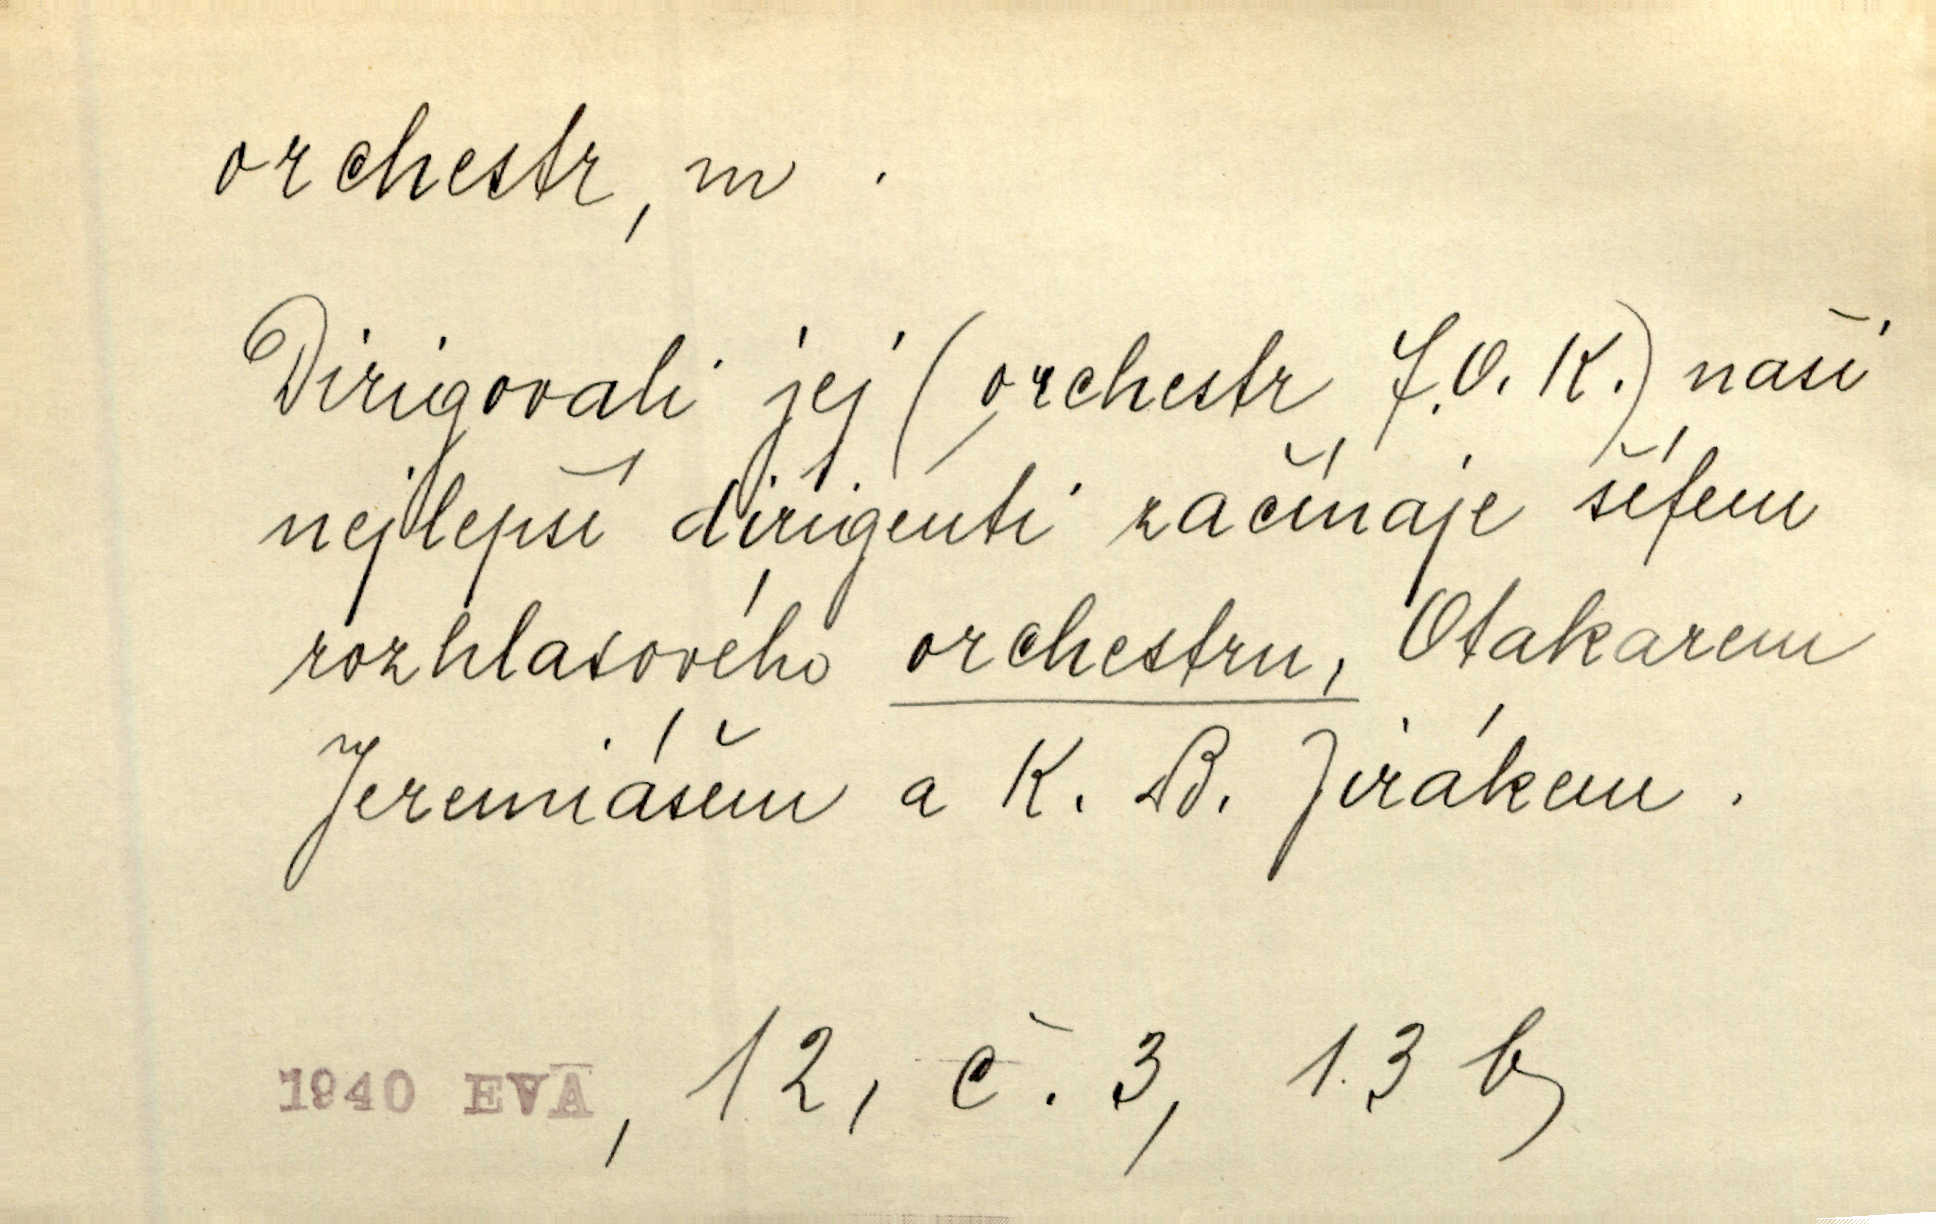 orchestr, m .
Dirigovali jej (orchestr F.O.K.) naši
nejlepší dirigenti začínaje šéfem
rozhlasového orchestru, Otakarem
Jeremiášem a K. B. Jirákem .
1940 EVA, 12, č. 3, 13 b